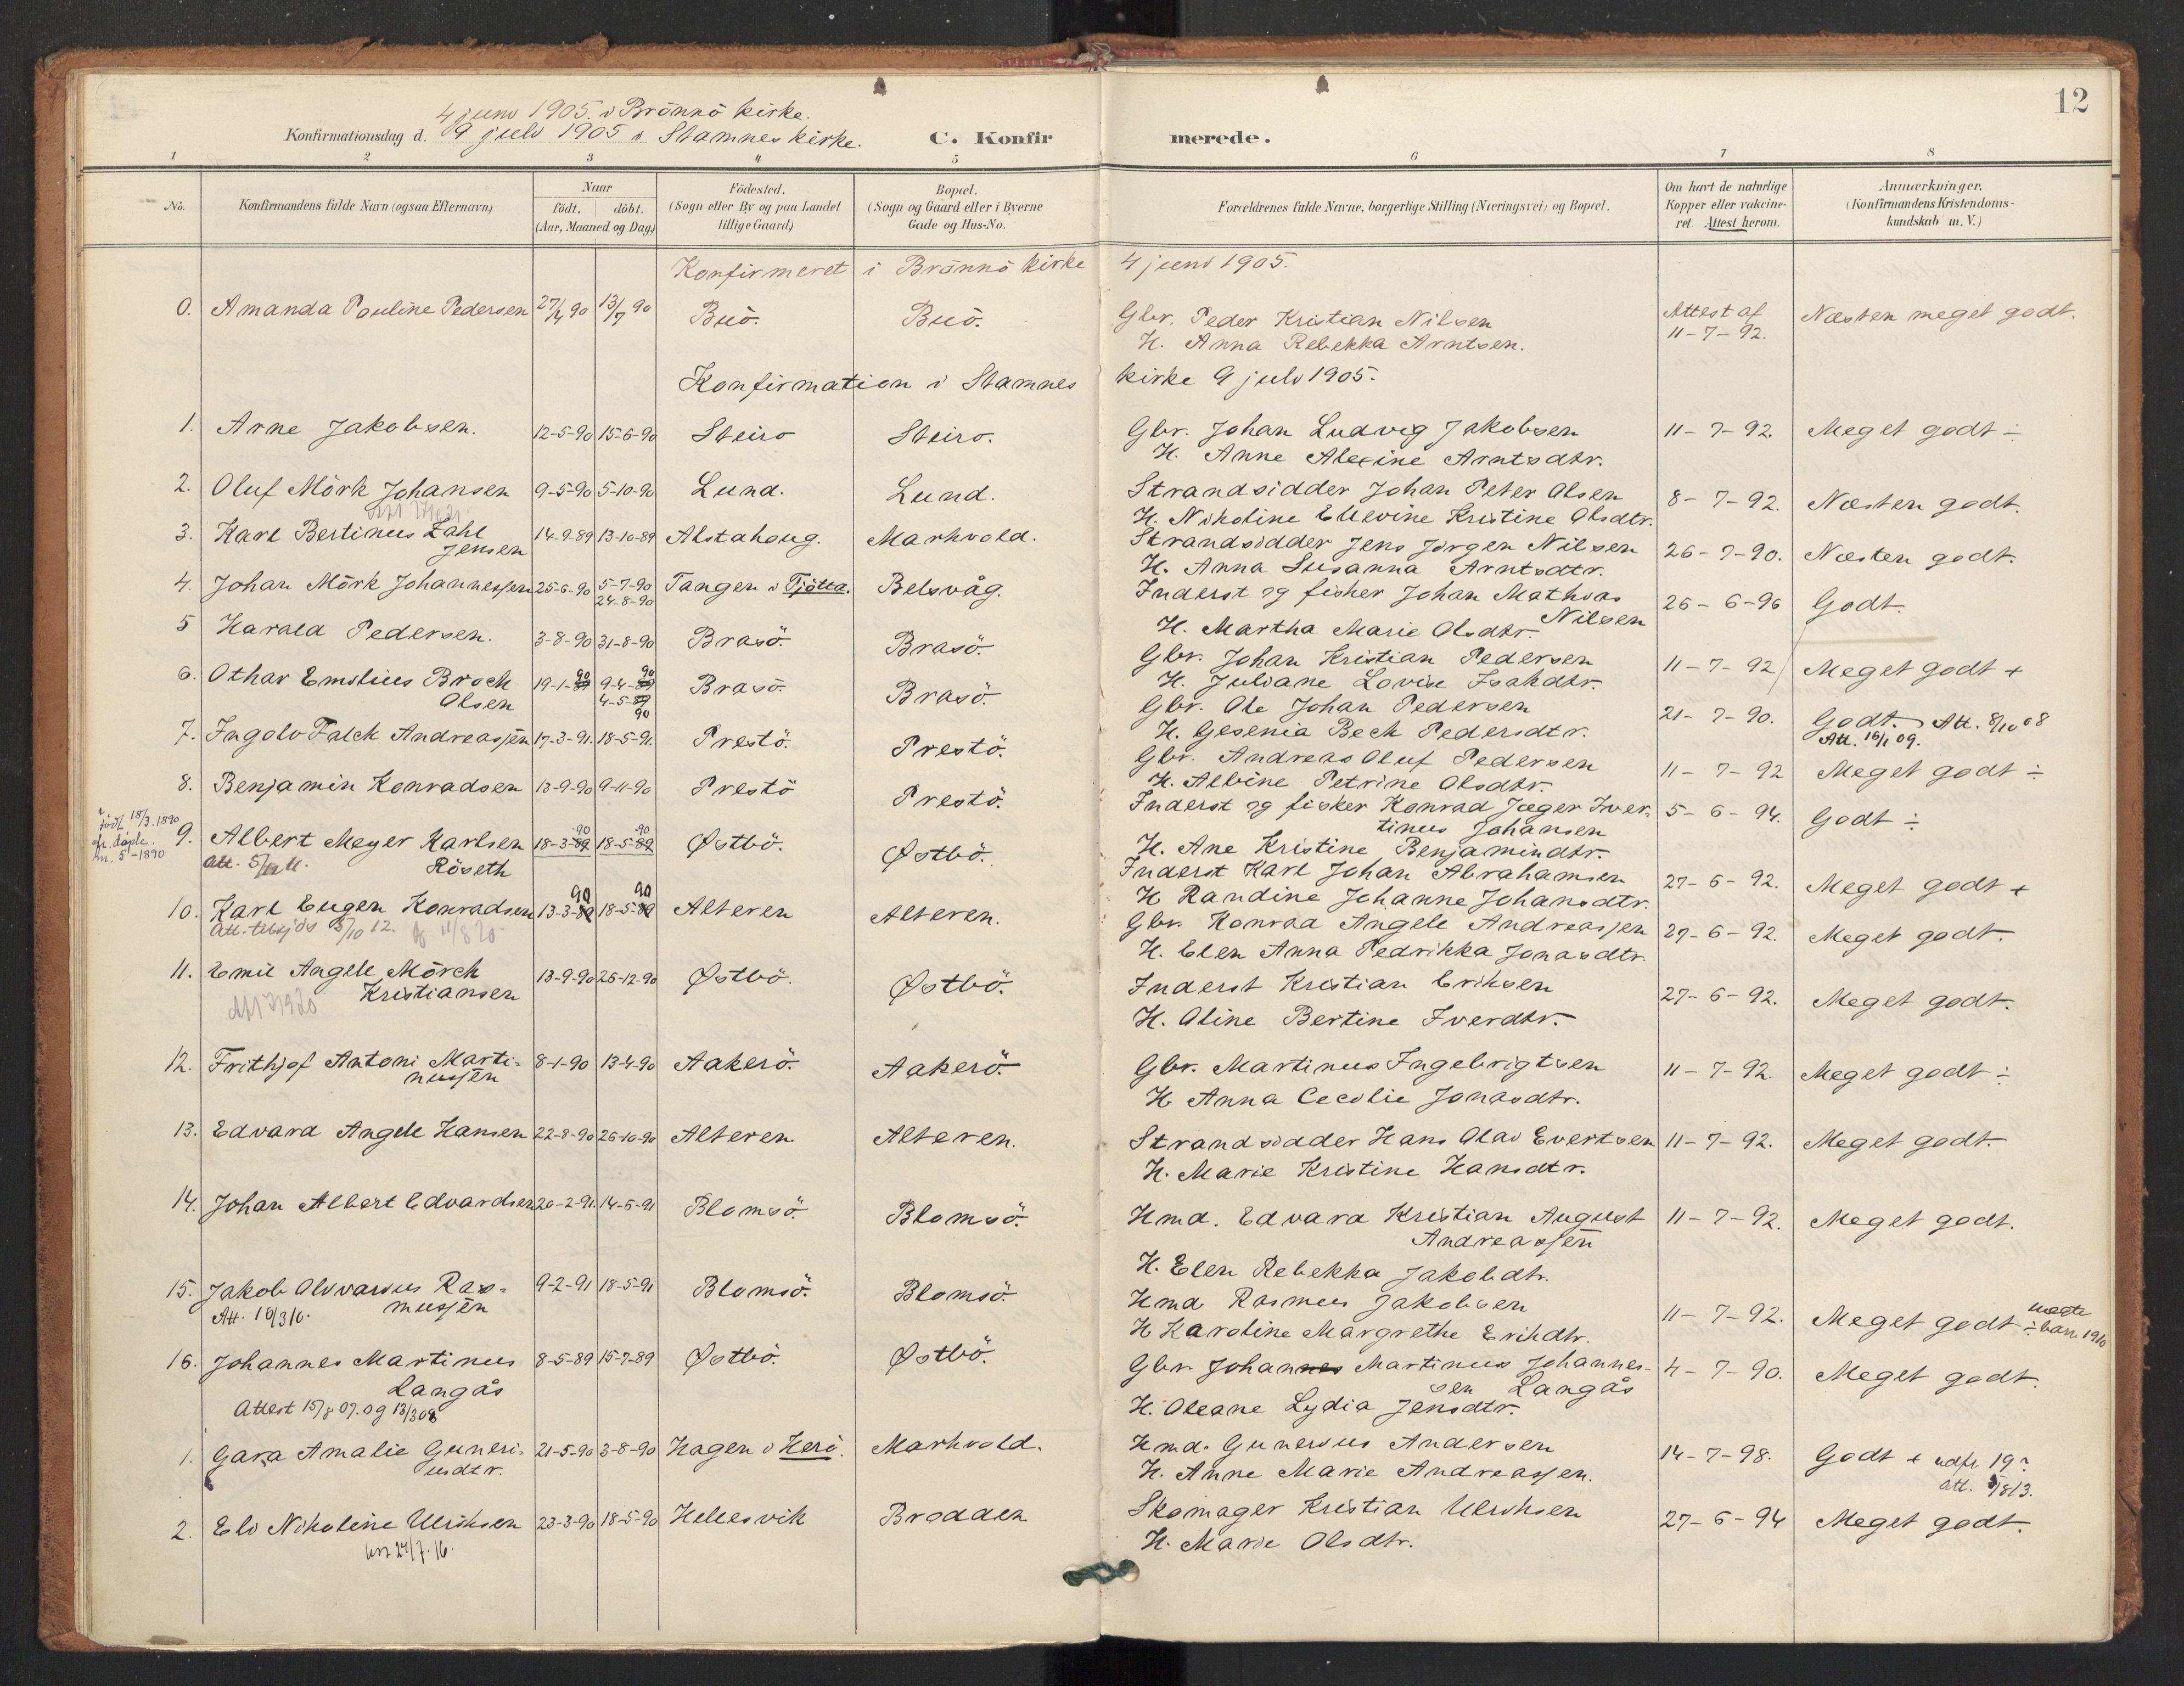 12
4 juni 1905. i Brönnö kirke.
Konfirmationsdag d. 9 juli 1905 i Stamnes kirke.
C. Konfirmerede.
1 2 3 4 5 6 7 8
No.
Konfirmandens fulde Navn (ogsaa Efternavn)
Naar
födt. döbt.
(Aar, Maaned og Dag)
Födested.
(Sogn eller By og paa Landet
tillige Gaard)
Bopæl.
(Sogn og Gaard eller i Byerne
Gade og Hus-No.
Forældrenes fulde Navne, borgerlige Stilling (Næringsvei) og Bopæl.
Om havt de naturlige
Kopper eller vakcine-
ret. Attest herom.
Anmærkninger.
(Konfirmandens Kristendoms-
kundskab m. V.)
Konfirmeret i Brönnö kirke 4 juni 1905.
0. Amanda Pauline Pedersen 27/4 90 13/7 90 Buö. Buö. Gbr. Peder Kristian Nilsen Attest af Næsten meget godt.
H. Anna Rebekka Arntsen. 11-7-92.
Konfirmation i Stamnes kirke 9 juli 1905.
1. Arne Jakobsen. 12-5-90 15-6-90 Steiro Steiro. Gbr. Johan Ludvig Jakobsen 11-7-92. Meget godt ÷
H. Anne Alexine Arntsdtr.
2. Oluf Mörk Johansen 9-5-90 5-10-90 Lund. Lund. Strandsidder Johan Peter Olsen 8-7-92. Næsten godt.
H. Nikoline Ellevine Kristine Olsdtr.
3. Karl Bertineus Zahl 14-9-89 13-10-89 Alstahoug. Marhvold. Strandsidder Jens Jörgen Nilsen 26-7-90. Næsten godt.
Jensen H. Anna Susanna Arntsdtr.
4. Johan Mörk Johannessen 25-6-90 5-7-90 Tangen i Tjötta. Belsvåg. Inderst og fisker Johan Mathias 26-6-96 Godt.
24-8-90 Nilsen
H. Martha Marie Olsdtr.
5 Harald Pedersen. 3-8-90 31-8-90 Brasö. Brasö. Gbr. Johan Kristian Pedersen 11-7-92 Meget godt +
H. Juliane Lovise Isakdtr.
6. Othar Emilius Broch 19-1-89 90 9-4-89 90 Brasö. Brasö. Gbr. Ole Johan Pedersen 21-7-90. Godt. Att. 8/10 08
Olsen 4-5-89 90 H. Gesenia Bech Pedersdtr. Att. 16/1 09.
7. Ingolv Falck Andreassen 17-3-91. 18-5-91. Prestö. Prestö. Gbr. Andreas Oluf Pedersen 11-7-92 Meget godt ÷
H. Albine Petrine Olsdtr.
8. Benjamin Konradsen 13-9-90 9-11-90 Prestö Prestö. Inderst og fisker Konrad Jæger Iver- 5-6-94. Godt ÷
tinus Johansen
H. Ane Kristine Benjamindtr.
födt 18/3.1890
9. Albert Meyer Karlsen 18-3-89 90 18-5-89 90 Østbö. Østbö. Inderst Karl Johan Abrahamsen 27-6-92. Meget godt +
Röseth H Randine Johanne Johansdtr.
10. Karl Eugen Konradsen 13-3-89 90 18-5-89 90 Alteren Alteren. Gbr. Konrad Angele Andreassen 27-6-92. Meget godt.
H. Elen Anna Fedrikka Jonasdtr.
11. Emil Angele Mörch 13-9-90 26-12-90 Østbö. Østbö. Inderst Kristian Eriksen 27-6-92. Meget godt.
Kristiansen H. Oline Bertine Iverdtr.
12. Frithjof Antoni Marti- 8-1-90 13-4-90 Aakerö. Aakerö. Gbr. Martinus Ingebrigtsen 11-7-92. Meget godt ÷
nussen H Anna Cecilie Jonasdtr.
13. Edvard Angele Hansen 22-8-90 26-10-90 Alteren Alteren. Strandsidder Hans Olai Evertsen 11-7-92. Meget godt.
H. Marie Kristine Hansdtr.
14. Johan Albert Edvardsen 20-2-91. 14-6-91 Blomsö. Blomsö. Hmd. Edvard Kristian August 11-7-92. Meget godt.
Andreassen
H. Elen Rebekka Jakobdtr.
15. Jakob Olivarius Ras- 9-2-91 18-5-91 Blomsö. Blomsö. Hmd. Rasmus Jakobsen 11-7-92. Meget godt ÷
Att. mussen H Karoline Margrethe Erikdtr.
16. Johannes Martinus 8-5-89 15-7-89 Østbö. Østbö. Gbr. Johannes Martinus Johannes- 4-7-90. Meget godt.
Langås sen Langås
Attest 15/8 07. og 13/3 08 H. Oleane Lydia Jensdtr.
1. Gara Amalie Guneri- 21-5-90 3-8-90 Hagen i Herö. Marhvold. Hmd. Gunerius Andersen 14-7-98. Godt +
usdtr. H. Anne Marie Andreassen.
2. Eli Nikoline Ulriksen 23-3-90 18-5-90 Hellesvik Brodden Skomager Kristian Ulriksen 27-6-94 Meget godt.
H. Marie Olsdtr.